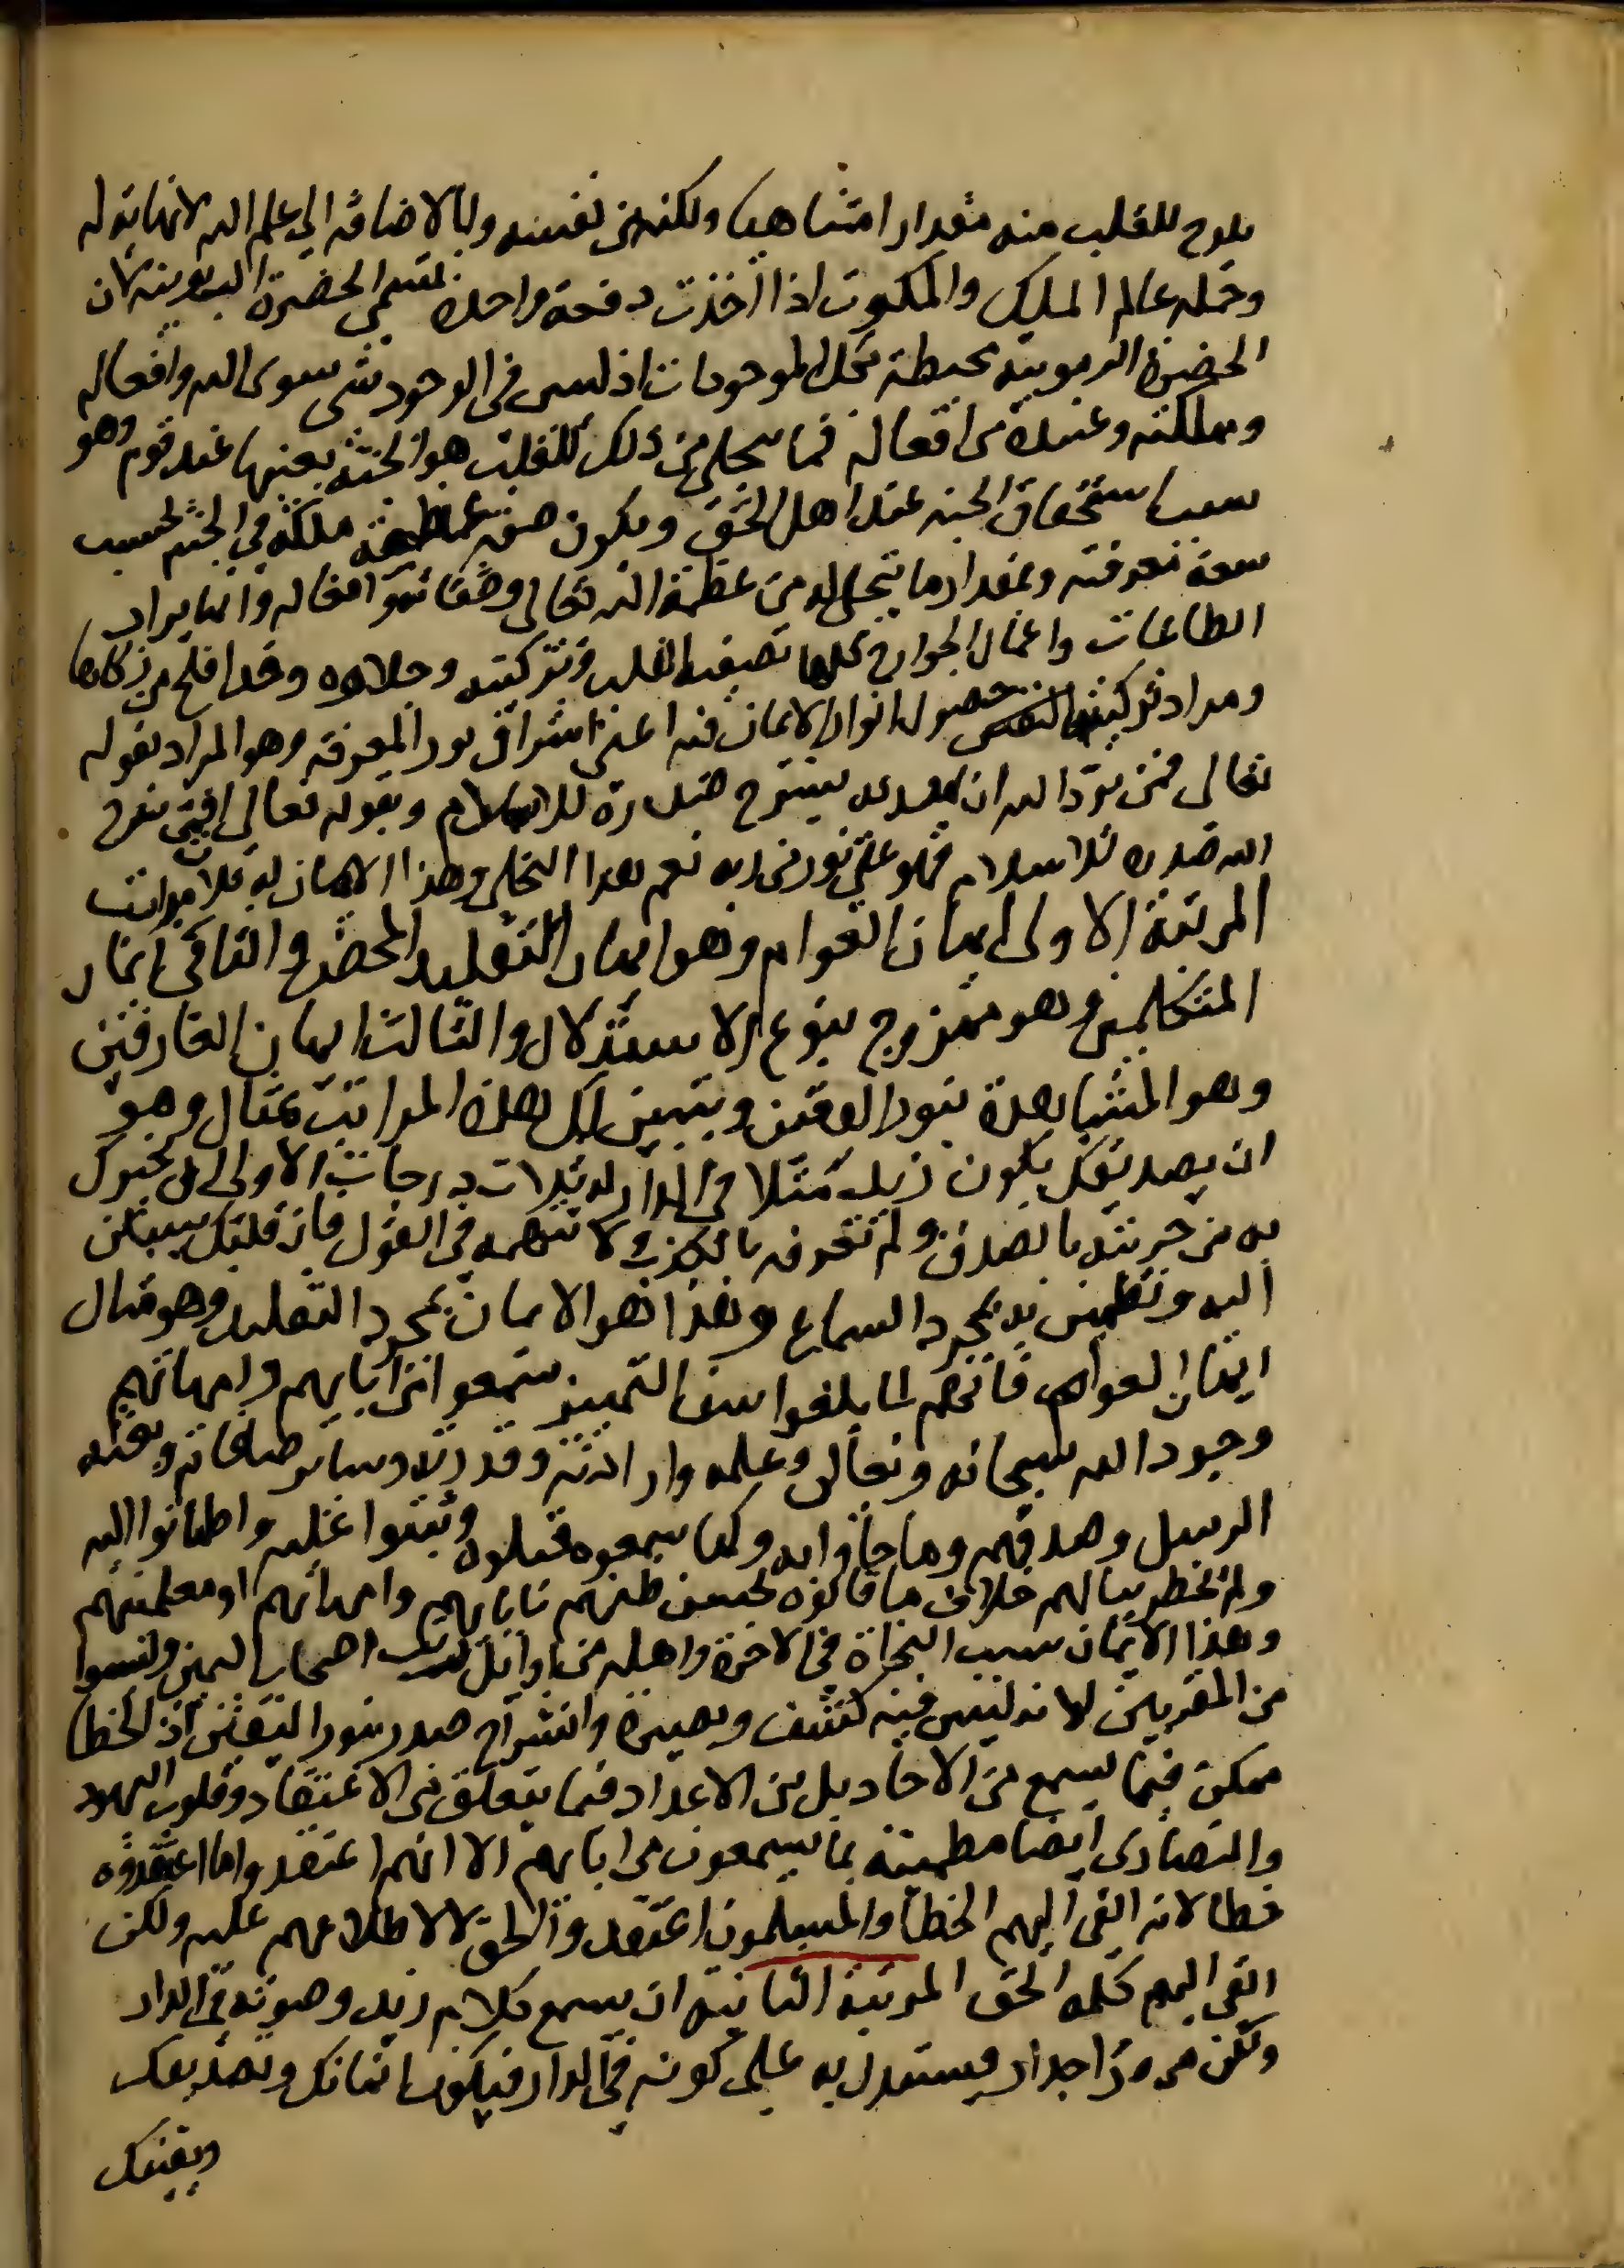 يلوح للقلب منه مقدار امتناهيا ولكنه في نفسه وبالاضافه الي علم الله لانهايه له
وجمله عالم الملك والملكوت اذا اخذت دفعة واحدة تسمي الحضرة الربوبيه لان
الحضرة الربوبيه محيطة بكل الموجودات اذ ليس في الوجود شي سوى الله وافعاله
ومملكته وعبيده من افعاله فما يتجلي من ذلك للقلب هو الجنة بعينها عند قوم وهو
سبب استحقاق الجنه عند اهل الحق ويكون سعة ملكه في الجنه بحسب
سعة معرفته وبمقدار ما يتجلى له من عظمة الله تعالى وصفاته وافعاله وانما يراد
الطاعات واعمال الجوارح كلها تصفية القلب وتزكيته وجلاوه وقد افلح من زكاها
ومراد تزكيته حصول انوار الايمان فيه اعني اشراق نور المعرفه وهو المراد بقوله
تعالى فمن يرد الله ان يهديه يشرح صدره للاسلام وبقوله تعالى افمن شرح
الله صدره للاسلام فهو على نور من ربه نعم هذا التجلي وهذا الايمان له ثلاث مراتب
المرتبة الاولى ايمان العوام وهو ايمان التقليد المحض والثاني ايمان
المتكلمين وهو ممزوج بنوع الاستدلال والثالث ايمان العارفين
وهو المشاهدة بنور اليقين ويتبين لك هذه المراتب بمثال وهو
ان تصديقك بكون زيد مثلا في الدار له ثلاث درجات الاولى ان يخبرك
به من جربته بالصدق ولم تعرفه بالكذب ولا تتهمه في القول فان قلبك يسكن
اليه ويطمئن به بمجرد السماع وهذا هو الايمان بمجرد التقليد وهو مثال
ايمان العوام فانهم لما بلغوا سن التمييز سمعوا من ابايهم وامهاتهم
وجود الله سبحانه وتعالى وعلمه وارادته وقدرته وساير صفاته وبعثه
الرسل وصدقهم وما جاوا به وكما سمعوه قبلوه وثبتوا عليه واطمانوا اليه
ولم يخطر ببالهم خلاف ما قالوه لحسن ظنهم بابايهم وامهاتهم او معلميهم
وهذا الايمان سبب النجاة في الاخرة واهله من اوائل رتب اصحاب اليمين وليسوا
من المقربين لانه ليس فيه كشف وبصيرة وانشراح صدر بنور اليقين اذ الخطا
ممكن فيما يسمع من الاحاد بل من الاعداد فيما يتعلق في الاعتقاد وقلوب اليهود
والنصارى ايضا مطمئنه بما يسمعون من ابايهم الا انهم اعتقدوا ما اعتقدوه
خطا لانه القي اليهم الخطا والمسلمون اعتقدوا الحق لا لاطلاعهم عليه ولكن
القي اليهم كلمه الحق المرتبة الثانيه ان يسمع كلام زيد وصوته في الدار
ولكن من وراجدار فيستدل به على كونه في الدار فيكون ايمانك وتصديقك
ويقينك